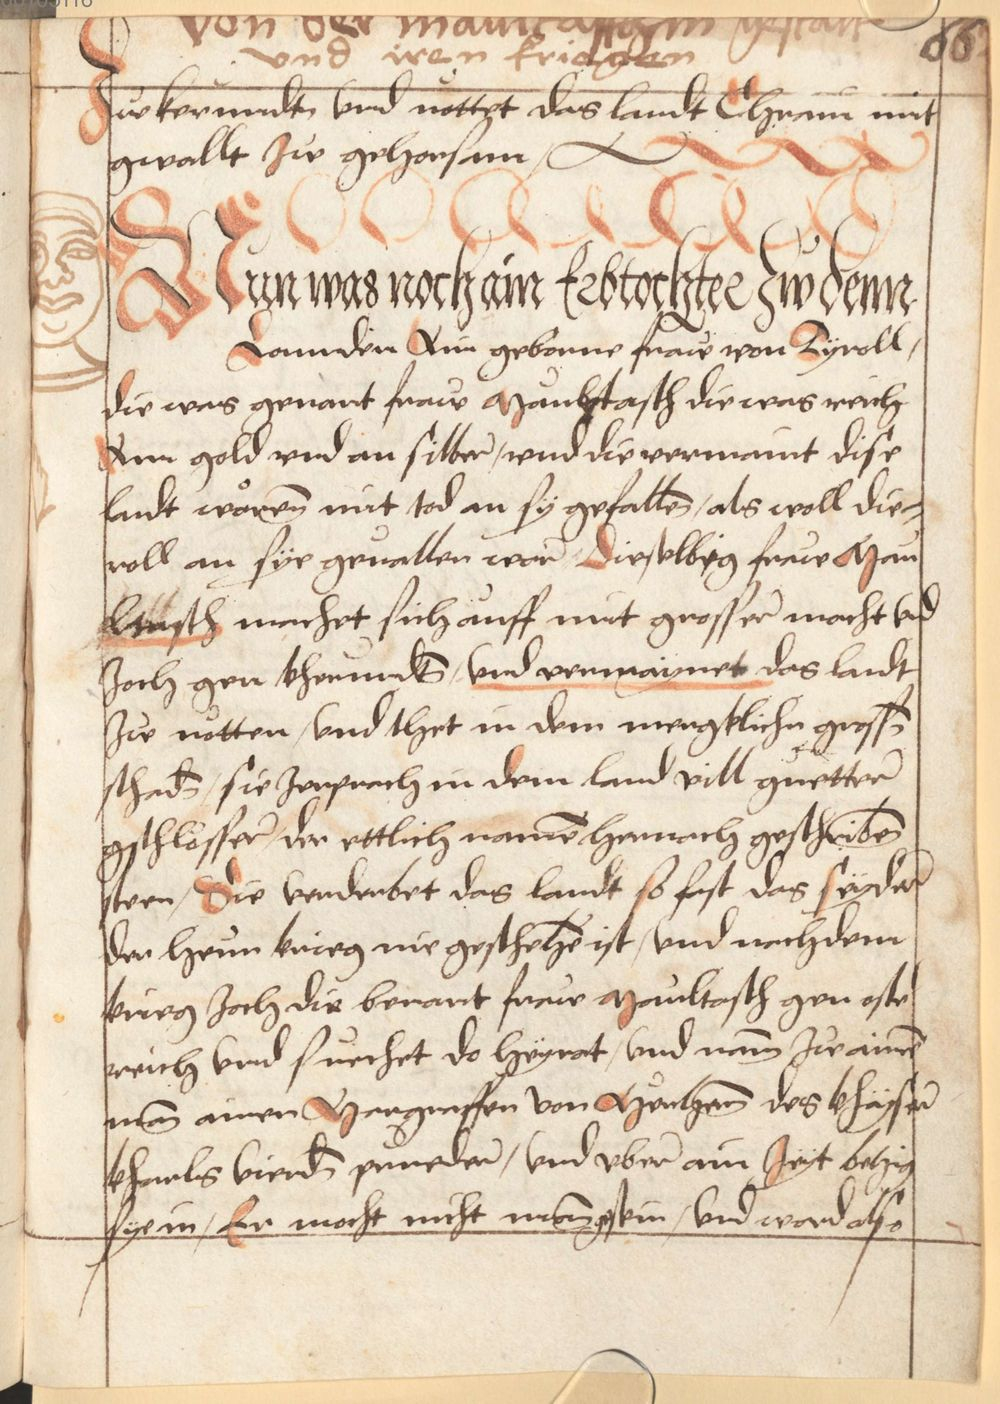 Von der maultaschin gestalt
und iren kriegen
66
zw kernndtn vnd nottet das landt Chrain mit
gwallt zw gehorsam /
Nun was noch ain Erbtochter zw denn
Lannden Ain geborne fraw von Tyroll /
die was genant fraw Maultasch die was reich
Ann gold vnd an silber / vnd die vermaint dise
landt wåren mit tod an sy gefallen / als woll die
roll an sye geuallen war Dieselbig fraw Mau
ltasch machet sich auff mit grosser macht vnd
zoch gen kherndtn / vnd vermaynet das landt
zw notten / vnd thet in dem mergklichn grossn
schadn / sie zerprach in dem land vill guetter
gschlösser / der ettlich namen hernach geschriben
steen / Die verderbet das landt so fast das seyder
der heun krieg nie geschehen ist / vnd nach dem
krieg zoch die benant fraw Maultasch gen oste
reich vnd suechet do heyrat / vnd nam zw ainen
man ainen Margraffen von Merhern des khayser
kharls vierdn prueder / vnd vber ain zeyt behig
sye in / Er mocht nicht man gsein / vnd ward also